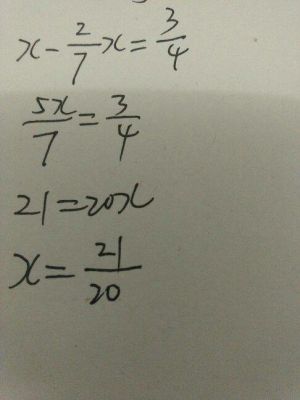 x - 2/7 x = 3/4
5x/7 = 3/4
21 = 20x
x = 21/20